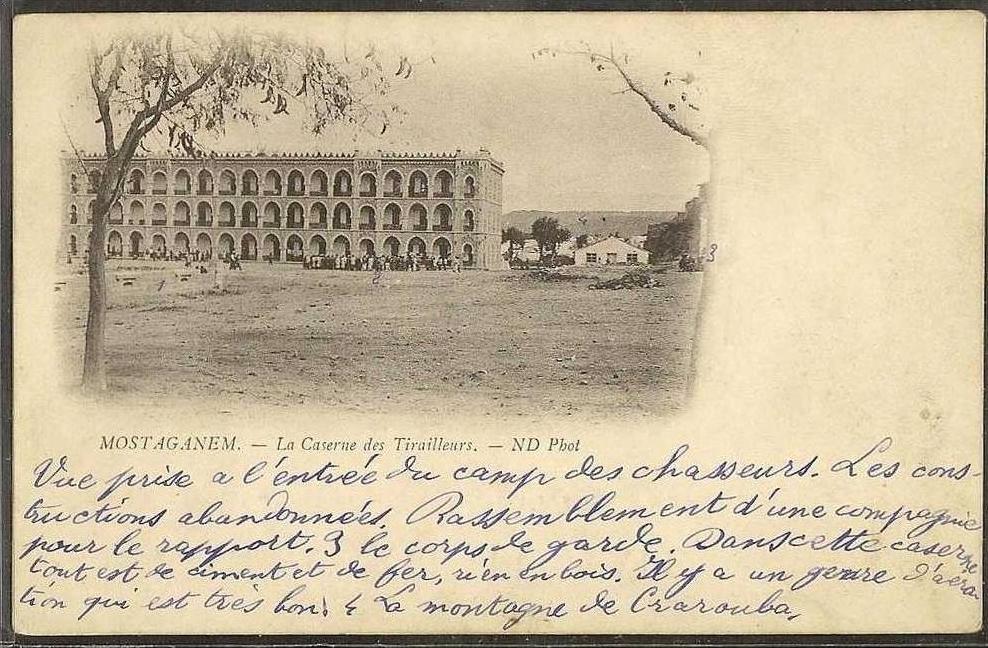 3
MOSTAGANEM. — La Caserne des Tirailleurs. — ND Phot
Vue prise a l'entrée du camp des chasseurs. Les cons-
tructions abandonnées. Rassemblement d'une compagnie
pour le rapport. 3 le corps de garde. Dans cette caserne
tout est de ciment et de fer, rien en bois. Il y a un genre d'aera
tion qui est très bon. 4 La montagne de Crarouba,